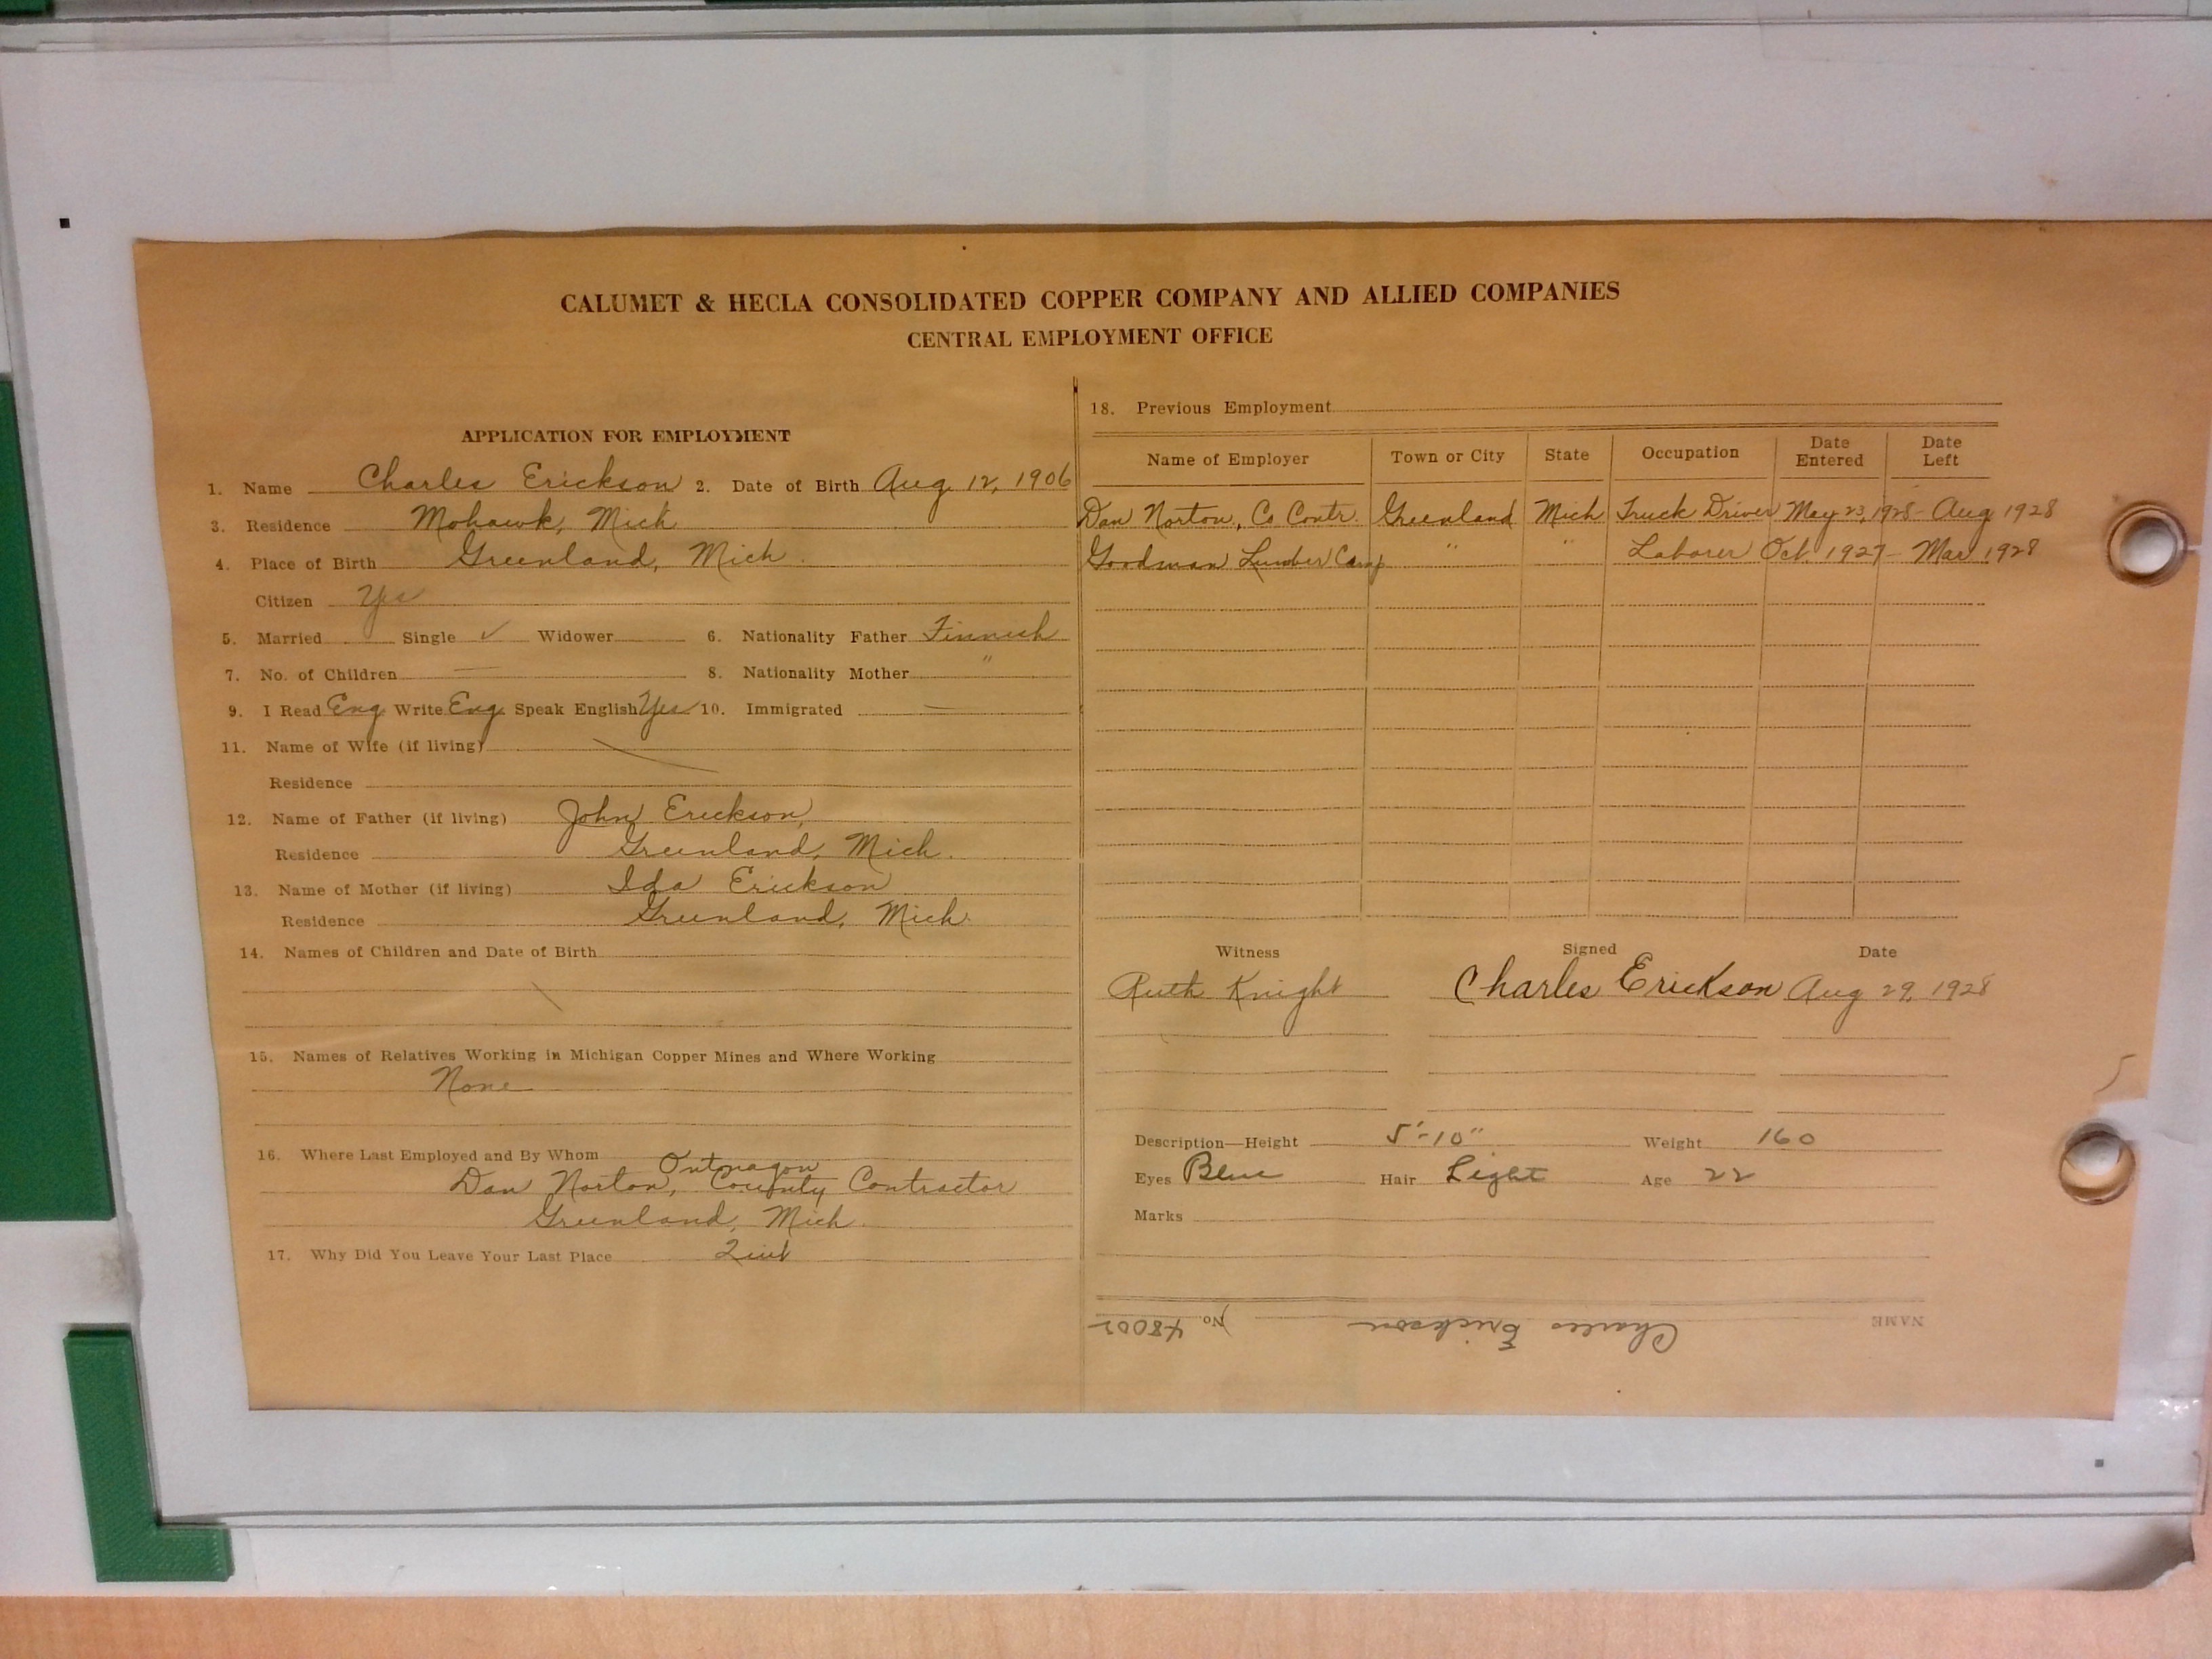 CALUMET & HECLA CONSOLIDATED COPPER COMPANY AND ALLIED COMPANIES
CENTRAL EMPLOYMENT OFFICE
APPLICATION FOR EMPLOYMENT
1. Name Charles Erickson 2. Date of Birth Aug 12, 1906
3. Residence Mohawk, Mich
4. Place of Birth Greenland, Mich.
Citizen Yes
5. Married Single ✓ Widower 6. Nationality Father Finnish
7. No. of Children — 8. Nationality Mother "
9. I Read Eng Write Eng. Speak English Yes 10. Immigrated —
11. Name of Wife (if living)
Residence
12. Name of Father (if living) John Erickson,
Residence Greenland, Mich.
13. Name of Mother (if living) Ida Erickson
Residence Greenland, Mich.
14. Names of Children and Date of Birth
15. Names of Relatives Working in Michigan Copper Mines and Where Working
None
16. Where Last Employed and By Whom
Ontonagon
Dan Norton, County Contractor
Greenland, Mich.
17. Why Did You Leave Your Last Place Quit
18. Previous Employment
Name of Employer Town or City State Occupation Date Entered Date Left
Dan Norton, Co Contr. Greenland Mich Truck Driver May 23, 1928 - Aug 1928
Goodman Lumber Camp " " Laborer Oct. 1927 - Mar. 1928
Witness Signed Date
Ruth Knight Charles Erickson Aug 29, 1928
Description—Height 5'-10" Weight 160
Eyes Blue Hair Light Age 22
Marks
NAME Charles Erickson No. 48002